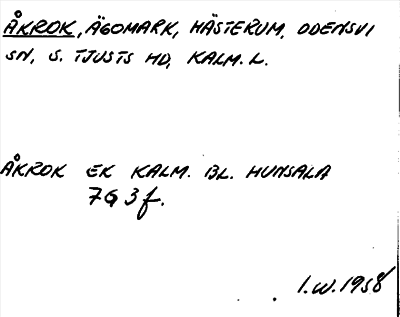 ÅKROK, ÄGOMARK, HÄSTERUM, ODENSVI
SN, S. TJUSTS HD, KALM. L.
ÅKROK EK KALM. BL. HUNSALA
7G 3f.
I.W. 1958